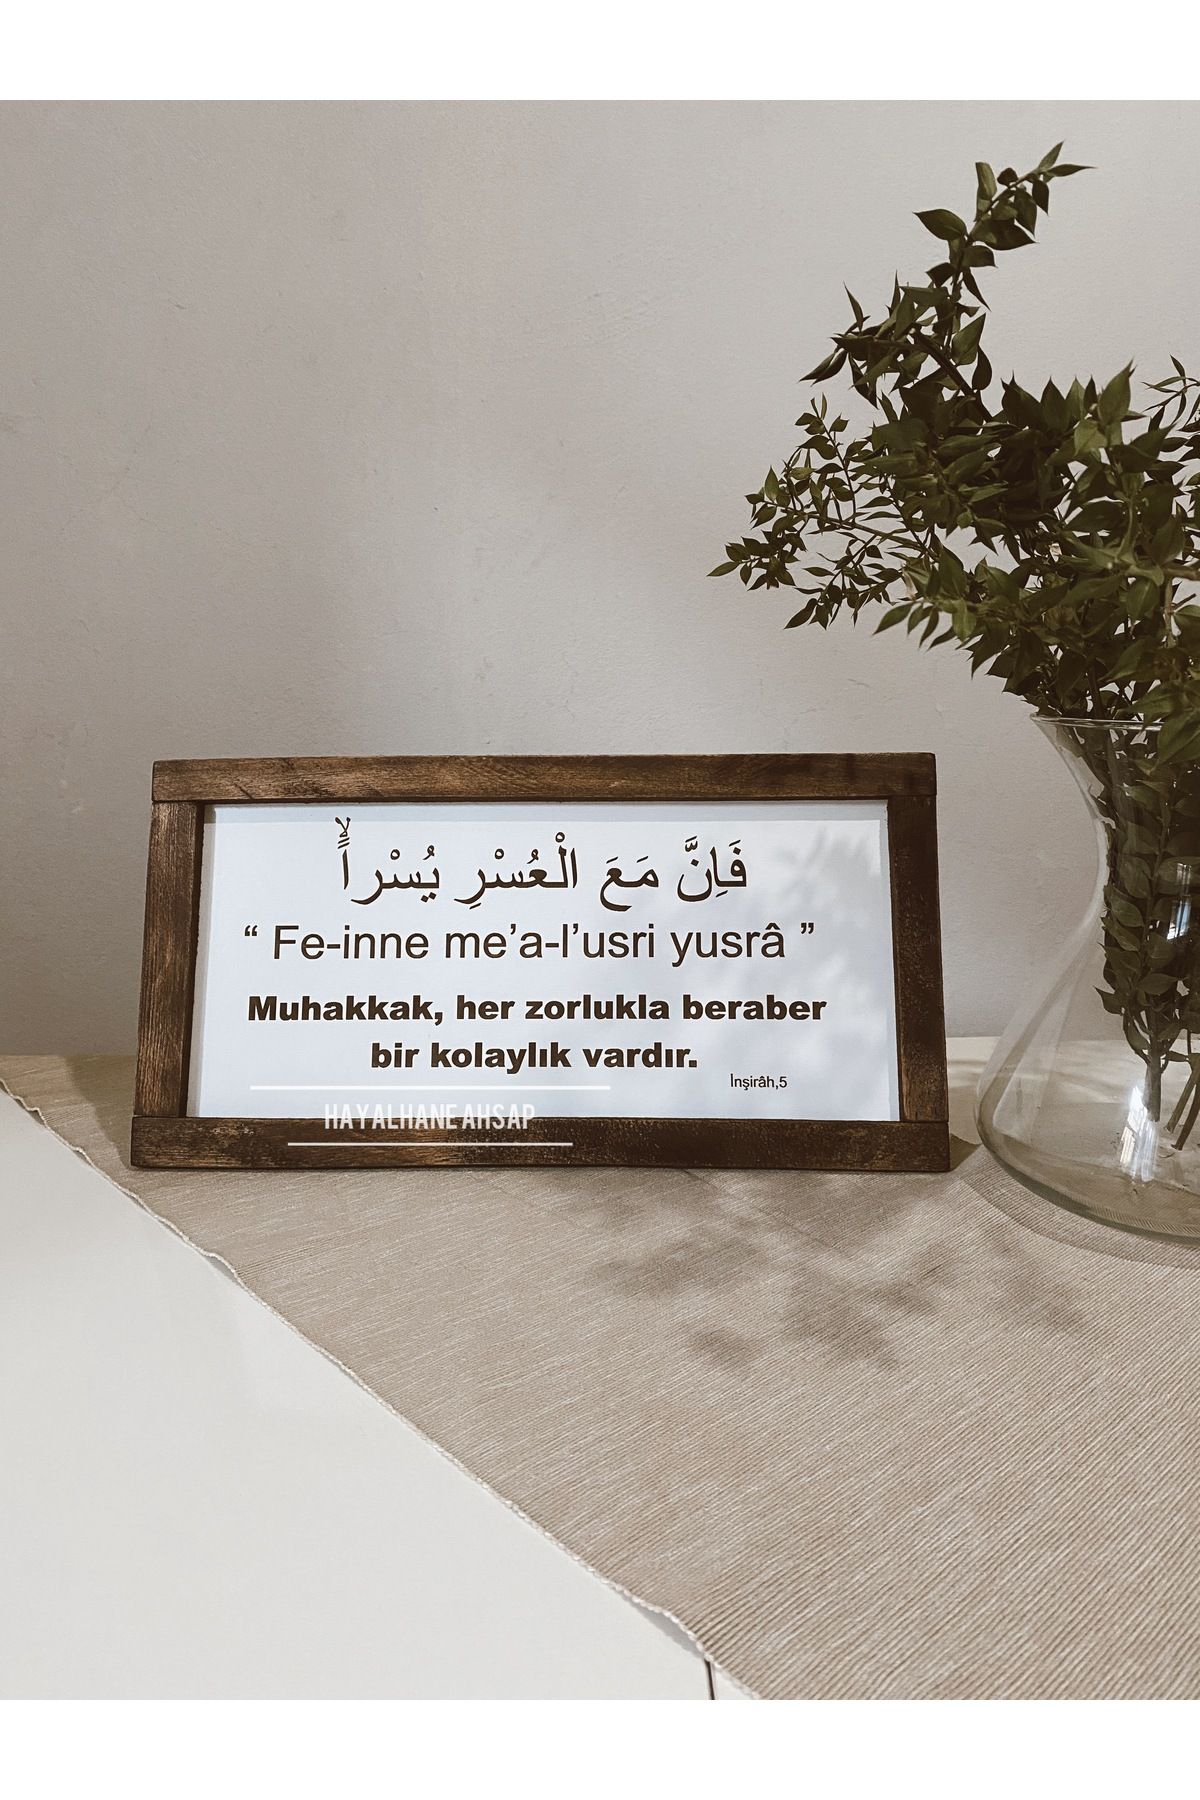 فَاِنَّ مَعَ الْعُسْرِ يُسْراًۙ
“ Fe-inne me’a-l’usri yusrâ ”
Muhakkak, her zorlukla beraber
bir kolaylık vardır.
İnşirâh,5
HAYALHANE AHSAP